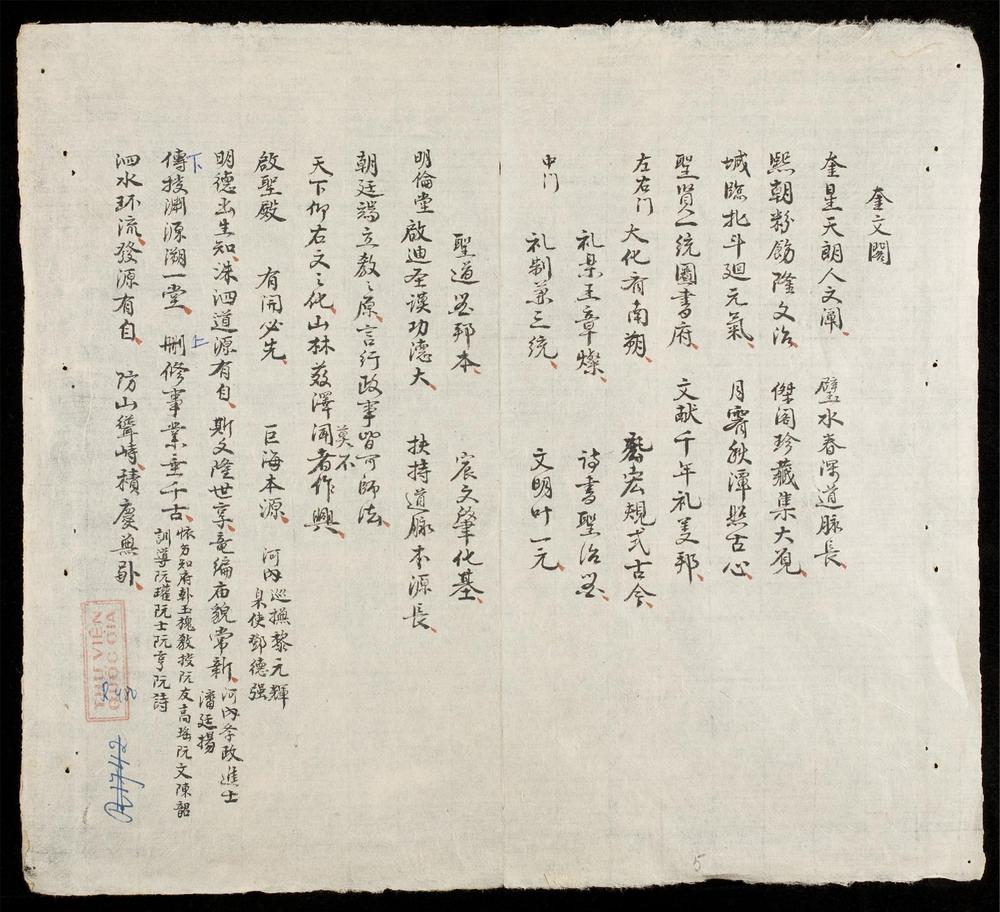 奎文閣
奎星天朗人文闡 璧水春深道脉長
熙朝粉飾隆文治 傑閣珍藏集大觀
城臨北斗廻元氣 月霽秋潭照古心
聖賢一統圖書府 文献千年礼義邦
左右门 大化有南朔 宏規式古今
礼杲王章燦 詩書聖治
中门 礼制兼三統 文明叶一元
聖道 邦本 宸文肇化基
明倫堂 啟迪圣謨功德大 扶持道脉本源長
朝廷端立教之原言行政事皆可師法
天下仰右文之化山林薮澤聞者莫不作興
啟聖殿 有開必先 巨海本源 河内巡撫黎元輝
臬使鄧德强
明德出生知洙泗道源有自 斯文隆世享竜編庙貌常新 河内参政進士
潘廷揚
下 傳授淵源溯一堂 上 刪修事業垂千古 怀方知府 玉槐教授阮友高瑶阮文陳韶
訓導阮璀阮士阮亨阮詩
泗水环流發源有自 防山聳峙積慶無
THƯ VIỆN
QUỐC GIA
R1742
5